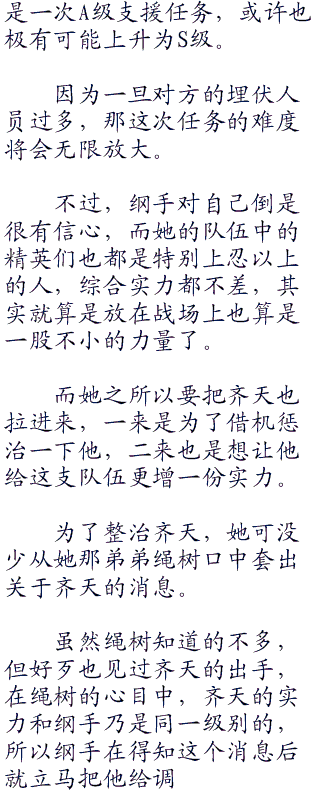 是一次A级支援任务，或许也
极有可能上升为S级。
因为一旦对方的埋伏人
员过多，那这次任务的难度
将会无限放大。
不过，纲手对自己倒是
很有信心，而她的队伍中的
精英们也都是特别上忍以上
的人，综合实力都不差，其
实就算是放在战场上也算是
一股不小的力量了。
而她之所以要把齐天也
拉进来，一来是为了借机惩
治一下他，二来也是想让他
给这支队伍更增一份实力。
为了整治齐天，她可没
少从她那弟弟绳树口中套出
关于齐天的消息。
虽然绳树知道的不多，
但好歹也见过齐天的出手，
在绳树的心目中，齐天的实
力和纲手乃是同一级别的，
所以纲手在得知这个消息后
就立马把他给调